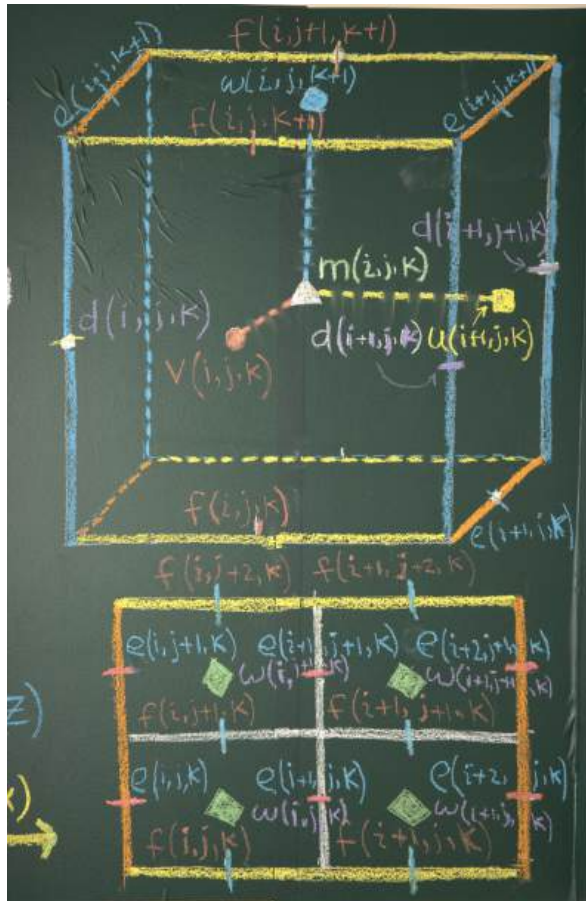 f(i,j+1,k+1)
e(i,j,k+1)
w(i,j,k+1)
e(i+1,j,k+1)
f(i,j,k+1)
d(i+1,j+1,k)
m(i,j,k)
d(i,j,k)
d(i+1,j,k)
u(i+1,j,k)
v(i,j,k)
f(i,j,k)
e(i+1,j,k)
f(i,j+2,k)
f(i+1,j+2,k)
e(i,j+1,k)
e(i+1,j+1,k)
e(i+2,j+1,k)
w(i,j+1,k)
w(i+1,j+1,k)
z)
f(i,j+1,k)
f(i+1,j+1,k)
e(i,j,k)
e(i+1,j,k)
e(i+2,j,k)
)
w(i,j,k)
w(i+1,j,k)
f(i,j,k)
f(i+1,j,k)